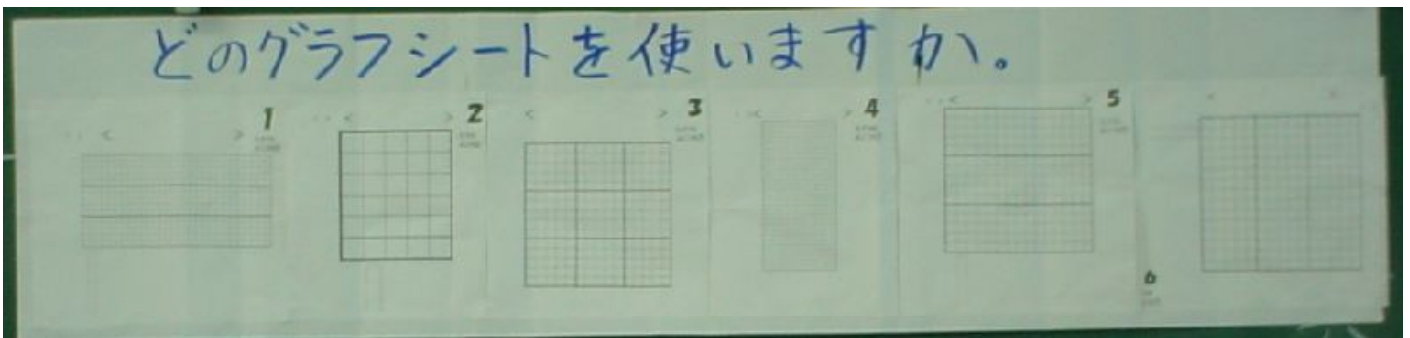 どのグラフシートを使いますか。
1
2
3
4
5
6